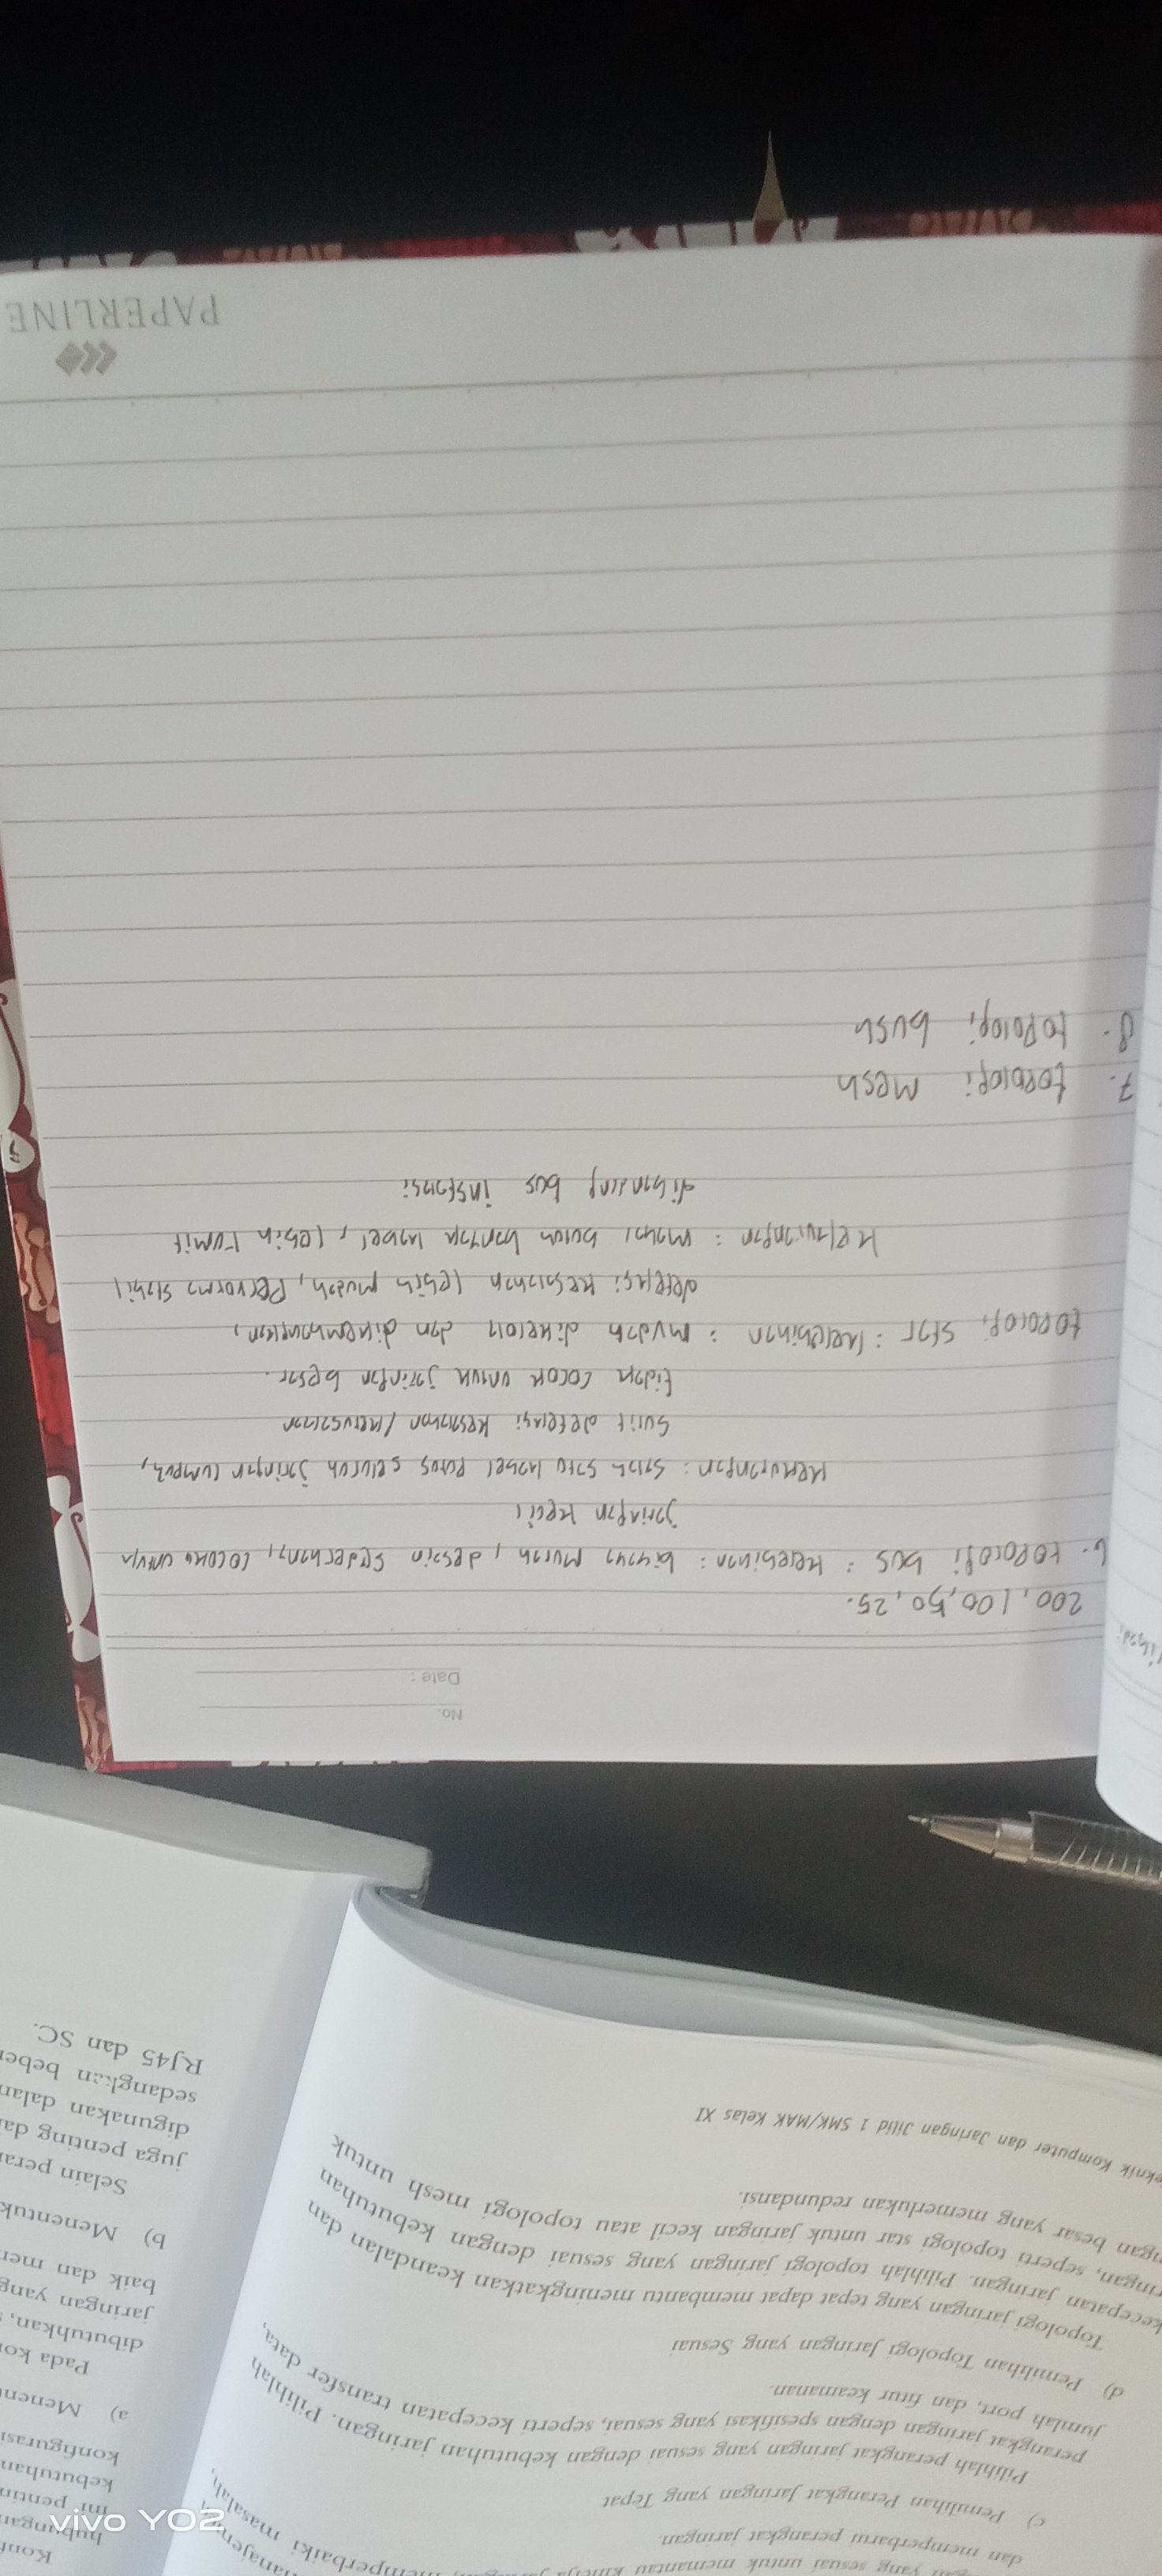 yang sesuai untuk memantau
dan memperbarui perangkat jaringan.
memperbaiki masalah,
c) Pemilihan Perangkat Jaringan yang Tepat
Pilihlah perangkat jaringan yang sesuai dengan kebutuhan jaringan. Pilihlah
perangkat jaringan dengan spesifikasi yang sesuai, seperti kecepatan transfer data,
jumlah port, dan fitur keamanan.
d) Pemilihan Topologi Jaringan yang Sesuai
Topologi jaringan yang tepat dapat membantu meningkatkan keandalan dan
kecepatan jaringan. Pilihlah topologi jaringan yang sesuai dengan kebutuhan
ringan, seperti topologi star untuk jaringan kecil atau topologi mesh untuk
ngan besar yang memerlukan redundansi.
eknik Komputer dan Jaringan Jilid 1 SMK/MAK Kelas XI
vivo Y02
Konf
hubungan
ini pentin
kebutuhan
konfigurasi
a) Menen
Pada ko
dibutuhkan,
jaringan yang
baik dan mer
b) Menentuk
Selain pera
juga penting da
digunakan dalan
sedangkan beber
RJ45 dan SC.
No.
Date :
200, 100, 50, 25.
6. topologi bus : kelebihan : biyaya murah, desain sederhana, cocok untuk
jaringan kecil
kekurangan : salah satu kabel putus seluruh jaringan lumpuh,
sulit deteksi kesalahan / kerusakan
tidak cocok untuk jaringan besar.
topologi star : kelebihan : mudah dikelola dan dikembangkan,
deteksi kesalahan lebih mudah, pervorma stabil
kekurangan : butuh banyak kabel, lebih rumit
dibanding bus instalasi
7. topologi Mesh
8. topologi bush
PAPERLINE